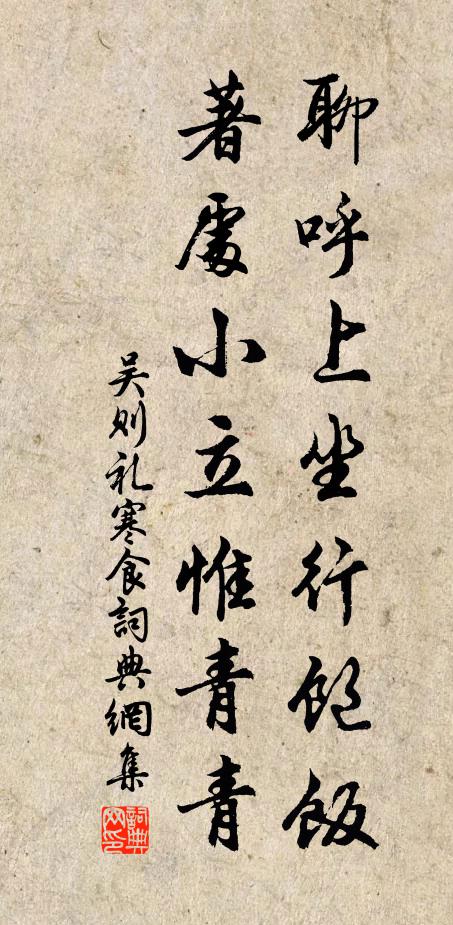 聊呼上坐行飽飯
著處小立惟青青
吴則礼寒食詞典網集
詞典網印